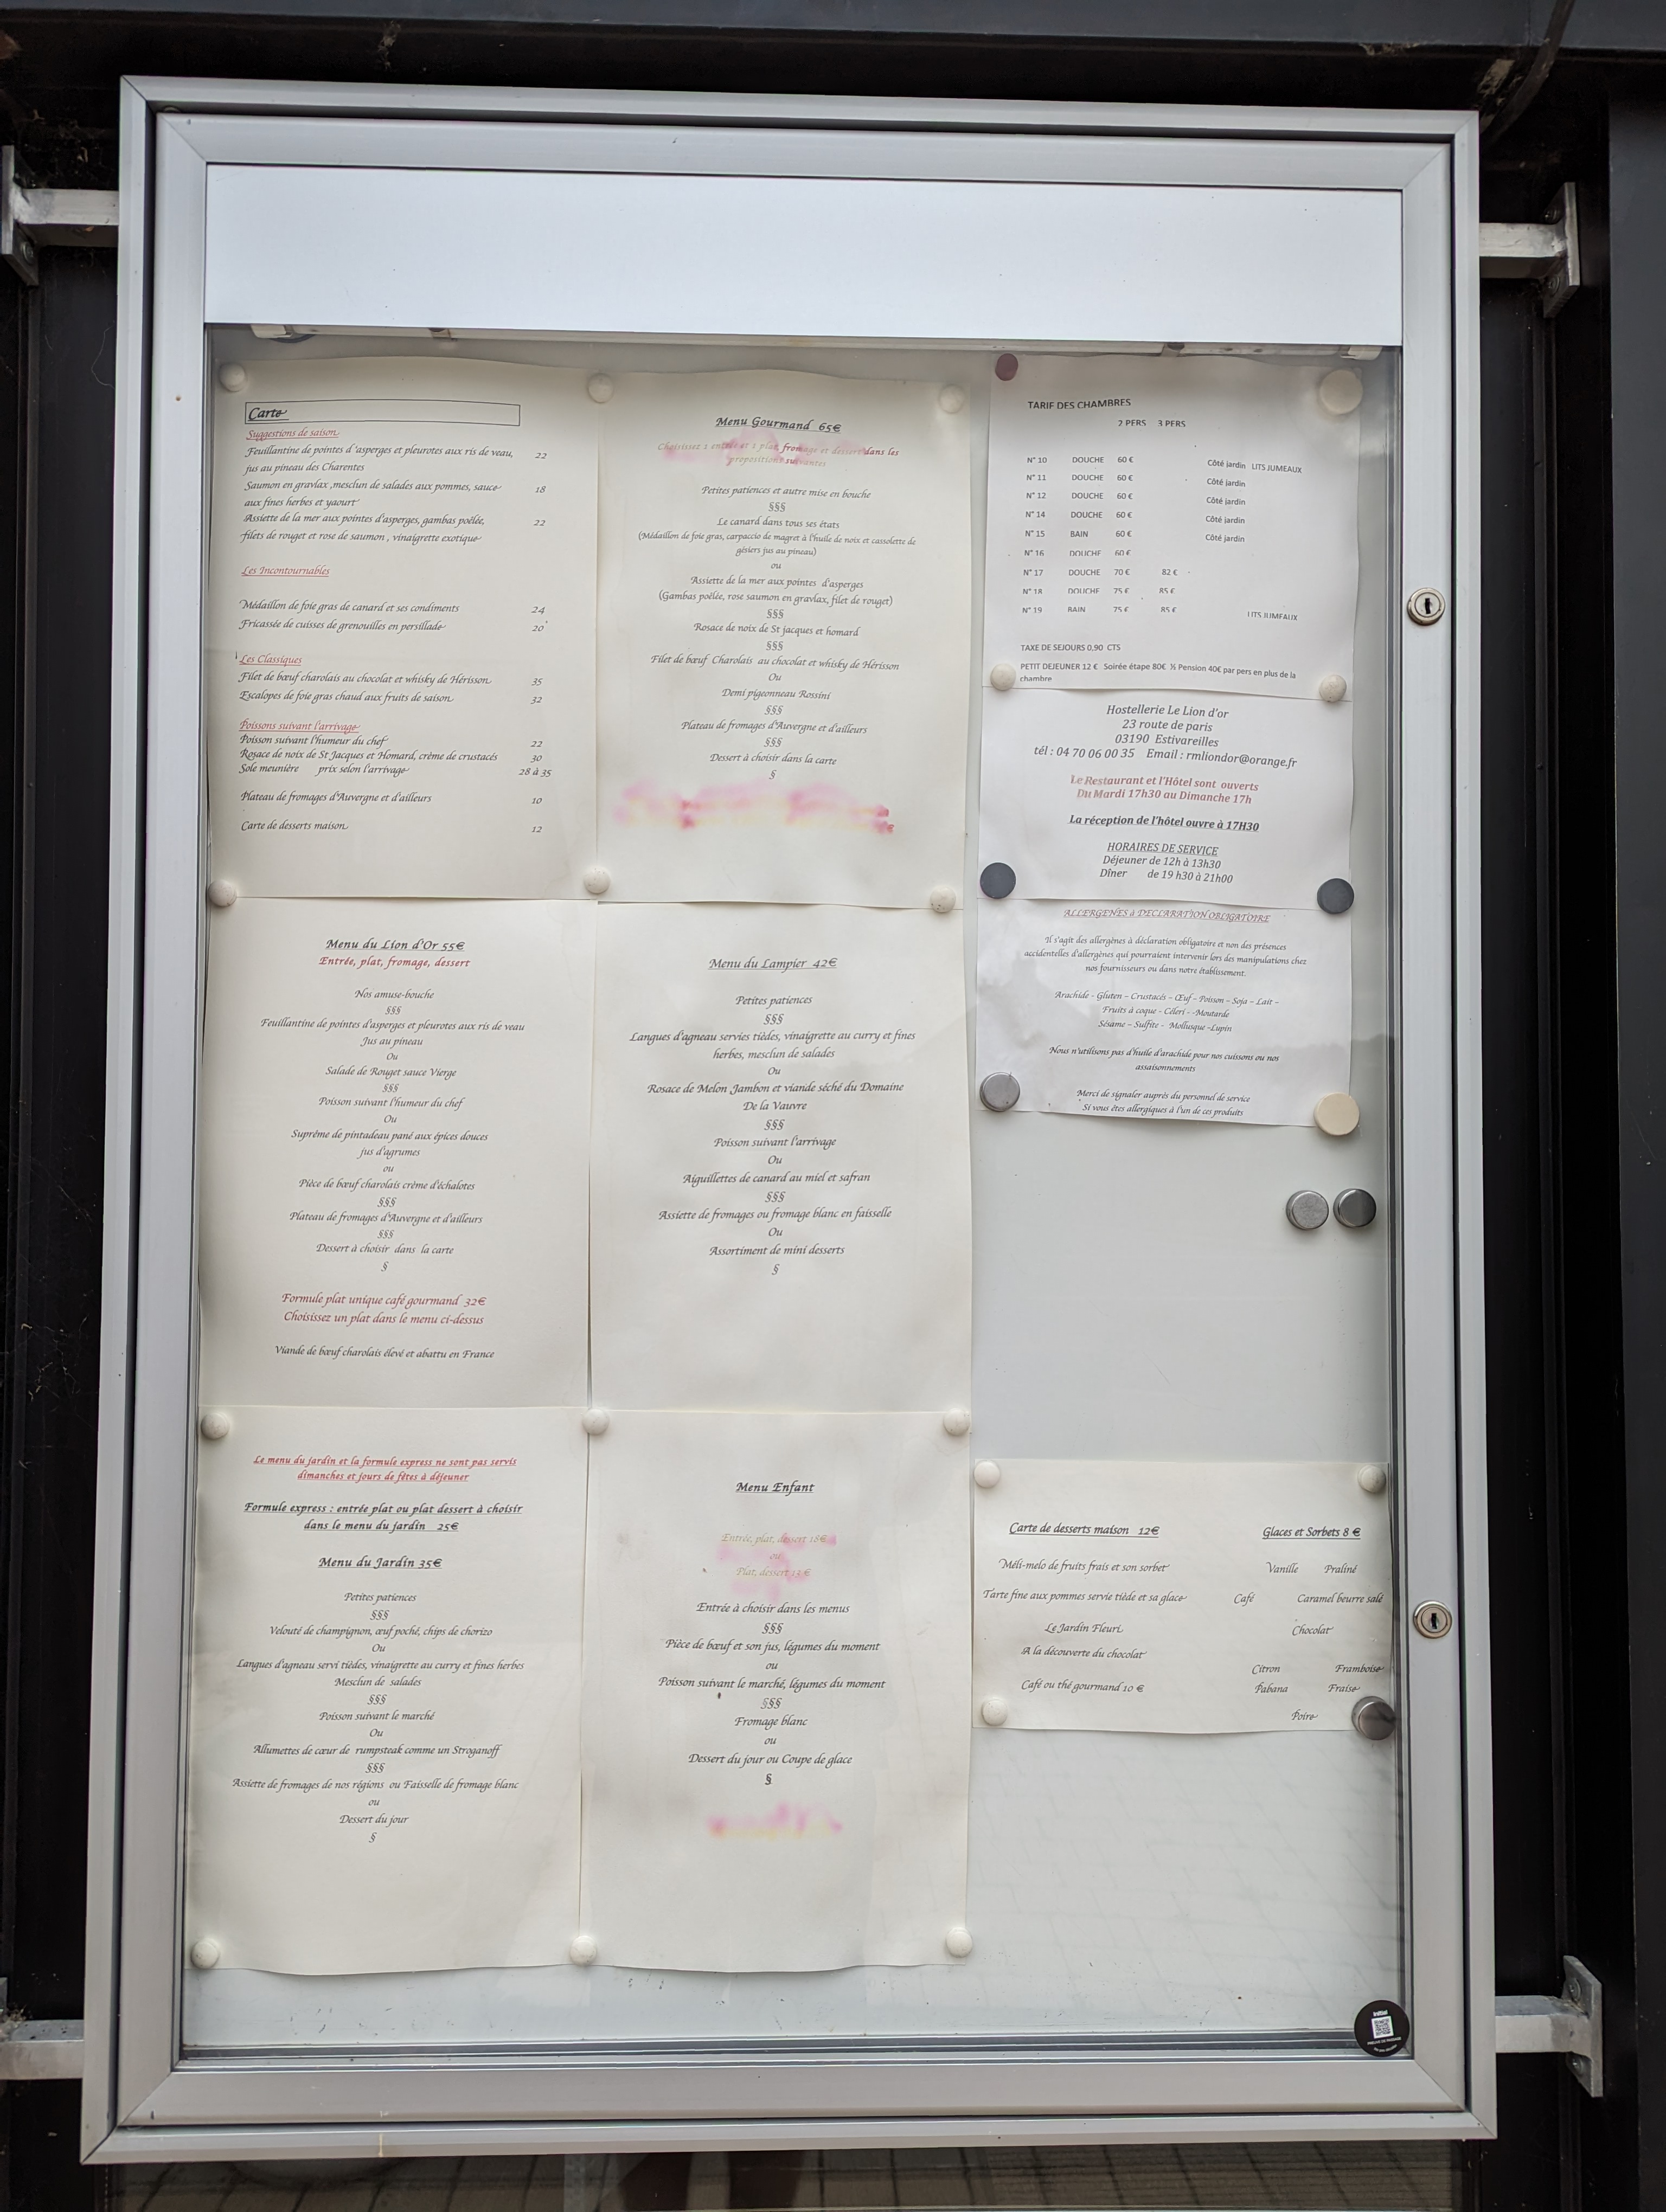 Carte
Suggestions de saison
Feuillantine de pointes d'asperges et pleurotes aux ris de veau, 22
jus au pineau des Charentes
Saumon en gravlax ,mesclun de salades aux pommes, sauce 18
aux fines herbes et yaourt
Assiette de la mer aux pointes d'asperges, gambas poêlée, 22
filets de rouget et rose de saumon , vinaigrette exotique
Les Incontournables
Médaillon de foie gras de canard et ses condiments 24
Fricassée de cuisses de grenouilles en persillade 20
Les Classiques
Filet de bœuf charolais au chocolat et whisky de Hérisson 35
Escalopes de foie gras chaud aux fruits de saison 32
Poissons suivant l'arrivage
Poisson suivant l'humeur du chef 22
Rosace de noix de St Jacques et Homard, crème de crustacés 30
Sole meunière prix selon l'arrivage 28 à 35
Plateau de fromages d'Auvergne et d'ailleurs 10
Carte de desserts maison 12
Menu Gourmand 65€
Choisissez 1 entrée et 1 plat, fromage et dessert dans les
propositions suivantes
Petites patiences et autre mise en bouche
§§§
Le canard dans tous ses états
(Médaillon de foie gras, carpaccio de magret à l'huile de noix et cassolette de
gésiers jus au pineau)
ou
Assiette de la mer aux pointes d'asperges
(Gambas poêlée, rose saumon en gravlax, filet de rouget)
§§§
Rosace de noix de St jacques et homard
§§§
Filet de bœuf Charolais au chocolat et whisky de Hérisson
Ou
Demi pigeonneau Rossini
§§§
Plateau de fromages d'Auvergne et d'ailleurs
§§§
Dessert à choisir dans la carte
§
TARIF DES CHAMBRES
2 PERS 3 PERS
N° 10 DOUCHE 60 € Côté jardin LITS JUMEAUX
N° 11 DOUCHE 60 € Côté jardin
N° 12 DOUCHE 60 € Côté jardin
N° 14 DOUCHE 60 € Côté jardin
N° 15 BAIN 60 € Côté jardin
N° 16 DOUCHE 60 €
N° 17 DOUCHE 70 € 82 €
N° 18 DOUCHE 75 € 85 €
N° 19 BAIN 75 € 85 € LITS JUMEAUX
TAXE DE SEJOURS 0,90 CTS
PETIT DEJEUNER 12 € Soirée étape 80€ ½ Pension 40€ par pers en plus de la
chambre
Hostellerie Le Lion d'or
23 route de paris
03190 Estivareilles
tél : 04 70 06 00 35 Email : rmliondor@orange.fr
Le Restaurant et l'Hôtel sont ouverts
Du Mardi 17h30 au Dimanche 17h
La réception de l'hôtel ouvre à 17H30
HORAIRES DE SERVICE
Déjeuner de 12h à 13h30
Dîner de 19 h30 à 21h00
ALLERGENES à DECLARATION OBLIGATOIRE
Il s'agit des allergènes à déclaration obligatoire et non des présences
accidentelles d'allergènes qui pourraient intervenir lors des manipulations chez
nos fournisseurs ou dans notre établissement.
Arachide - Gluten – Crustacés – Œuf – Poisson – Soja – Lait –
Fruits à coque - Céleri - -Moutarde
Sésame – Sulfite - Mollusque –Lupin
Nous n'utilisons pas d'huile d'arachide pour nos cuissons ou nos
assaisonnements
Merci de signaler auprès du personnel de service
Si vous êtes allergiques à l'un de ces produits
Menu du Lion d'Or 55€
Entrée, plat, fromage, dessert
Nos amuse-bouche
§§§
Feuillantine de pointes d'asperges et pleurotes aux ris de veau
Jus au pineau
Ou
Salade de Rouget sauce Vierge
§§§
Poisson suivant l'humeur du chef
Ou
Suprême de pintadeau pané aux épices douces
jus d'agrumes
ou
Pièce de bœuf charolais crème d'échalotes
§§§
Plateau de fromages d'Auvergne et d'ailleurs
§§§
Dessert à choisir dans la carte
§
Formule plat unique café gourmand 32€
Choisissez un plat dans le menu ci-dessus
Viande de bœuf charolais élevé et abattu en France
Menu du Lampier 42€
Petites patiences
§§§
Langues d'agneau servies tièdes, vinaigrette au curry et fines
herbes, mesclun de salades
Ou
Rosace de Melon Jambon et viande séché du Domaine
De la Vauvre
§§§
Poisson suivant l'arrivage
Ou
Aiguillettes de canard au miel et safran
§§§
Assiette de fromages ou fromage blanc en faisselle
Ou
Assortiment de mini desserts
§
Le menu du jardin et la formule express ne sont pas servis
dimanches et jours de fêtes à déjeuner
Formule express : entrée plat ou plat dessert à choisir
dans le menu du jardin 25€
Menu du Jardin 35€
Petites patiences
§§§
Velouté de champignon, œuf poché, chips de chorizo
Ou
Langues d'agneau servi tièdes, vinaigrette au curry et fines herbes
Mesclun de salades
§§§
Poisson suivant le marché
Ou
Allumettes de cœur de rumpsteak comme un Stroganoff
§§§
Assiette de fromages de nos régions ou Faisselle de fromage blanc
ou
Dessert du jour
§
Menu Enfant
Entrée, plat, dessert 18€
ou
Plat, dessert 15 €
Entrée à choisir dans les menus
§§§
Pièce de bœuf et son jus, légumes du moment
ou
Poisson suivant le marché, légumes du moment
§§§
Fromage blanc
ou
Dessert du jour ou Coupe de glace
§
Carte de desserts maison 12€
Méli-melo de fruits frais et son sorbet
Tarte fine aux pommes servie tiède et sa glace
Le Jardin Fleuri
A la découverte du chocolat
Café ou thé gourmand 10 €
Glaces et Sorbets 8 €
Vanille Praliné
Café Caramel beurre salé
Chocolat
Citron Framboise
Pabana Fraise
Poire
initial